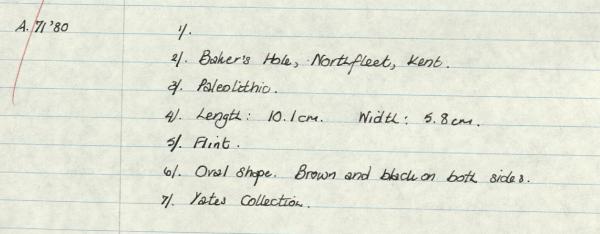 A. 71'80
1/.
2/. Baker's Hole, Northfleet, Kent.
3/. Paleolithic.
4/. Length: 10.1cm. Width: 5.8cm.
5/. Flint.
6/. Oval shape. Brown and black on both sides.
7/. Yates Collection.